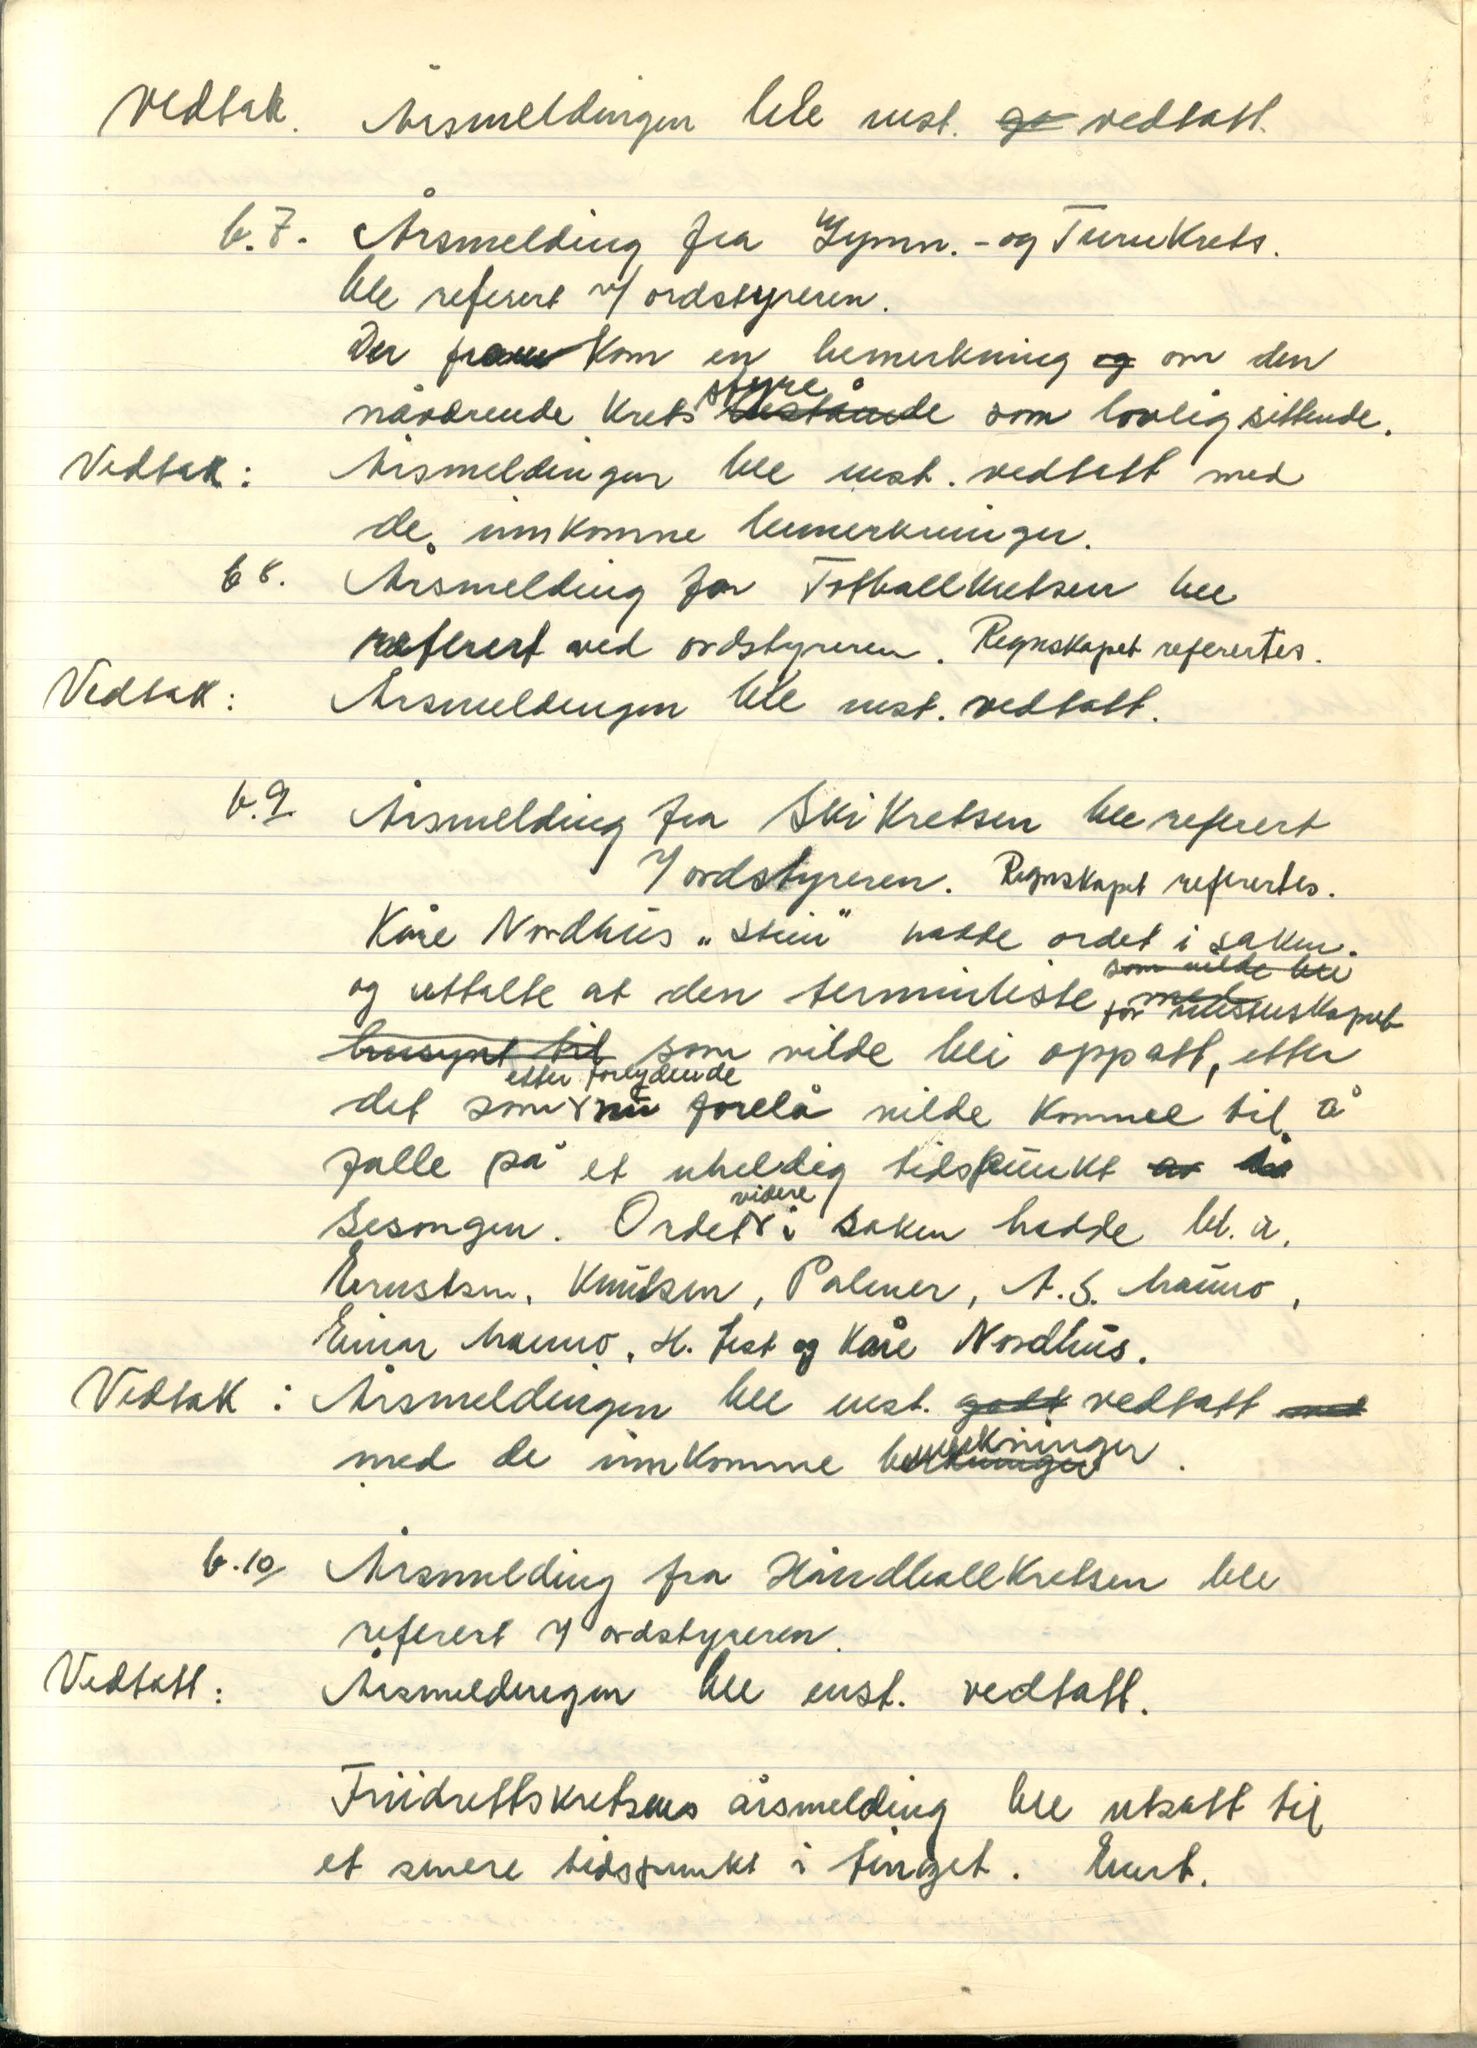 Vedtak. Årsmeldingen ble enst. go vedtatt.
b.7. Årsmelding fra Gymn.- og Turnkrets.
ble referert v/ ordstyreren.
Der frem kom en bemerkning og om den
styre
nåværende krets bestående som lovlig sittende.
Vedtak: Årsmeldingen ble enst. vedtatt med
de innkomne bemerkninger.
b 8. Årsmelding for Fotballkretsen ble
referert ved ordstyreren. Regnskapet referertes.
Vedtak: Årsmeldingen ble enst. vedtatt.
b.9. Årsmelding fra Skikretsen ble referert
v/ ordstyreren. Regnskapet referertes.
Kåre Nordhus „Stein" hadde ordet i saken.
som vilde bli
og uttalte at den terminliste med
for mesterskapet
hensynt til som vilde bli oppsatt, etter
etter forlydende
det som nu forelå vilde komme til å
falle på et uheldig tidspunkt av
sesongen. Ordet videre i saken hadde bl. a.
Ernstsen, Knutsen, Palmer, A. S. Mauno,
Einar Mauno, H. Jest og Kåre Nordhus.
Vedtak: Årsmeldingen ble enst. godt vedtatt med
med de innkomne bemerkninger.
b.10 Årsmelding fra Håndballkretsen ble
referert v/ ordstyreren.
Vedtatt: Årsmeldingen ble enst. vedtatt.
Friidrettskretsens årsmelding ble utsatt til
et senere tidspunkt i tinget. Enst.